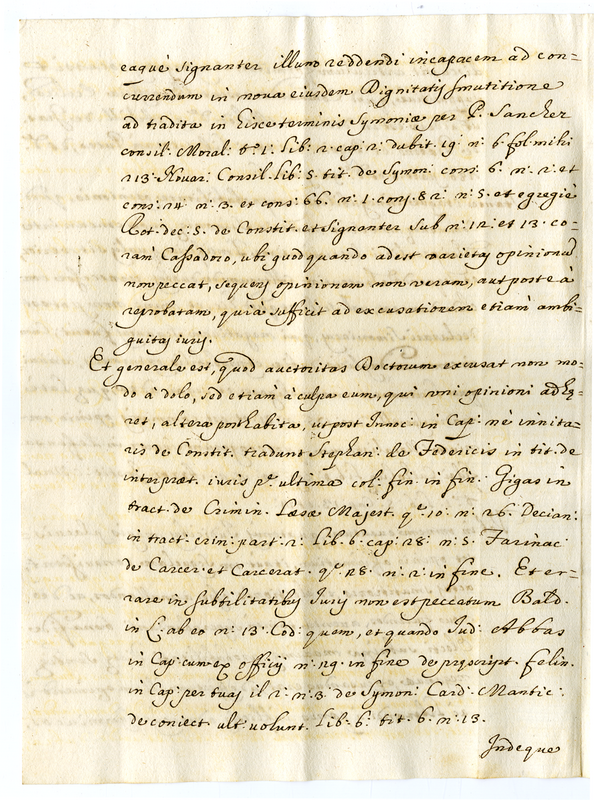 eaque signanter illum reddendi incapacem ad con=
currendum in nova eiusdem Dignitatis
ad tradita in hisce terminis Symoniæ per P. Sanchez
consil: Moral: t.º 1: Lib: 2. cap: 2: dubit. 19: n: 6. fol. mihi
213. Novar: Consil. Lib: 5. tit. de Symon: cons: 6. n: 2. et
cons: 14. n: 3. et cons: 66. n: 1. conj. 82: n: 5. et egregiè
Rot. dec: 5. de Constit. et signanter sub n: 12: et 13. co=
ram Cassadoro, ubi quod quando adest varietas opinionum
non peccat, sequens opinionem non veram, aut posteà
reprobatam, quià sufficit ad excusationem etiam ambi=
guitas iuris.
Et generale est, quod auctoritas Doctorum excusat non mo=
do à dolo, sed etiam à culpa eum, qui uni opinioni adhæ=
ret, altera posthabita, ut post Innoc: in Cap: nè innita=
ris de Constit. tradunt Stephan: de Federicis in tit. de
interpræt. iuris p.ª ultima col: fin. in fin. Gigas in
tract. de Crimin. Læsæ Majest. q.º 10: n: 26. Decian:
in tract. crin: part. 2: Lib. 6. cap: 28: n: 5. Farinac:
de Carcer. et Carcerat. q.º 28. n: 2: in fine. Et er=
rare in subtilitatibus Iuris non est peccatum Bald.
in L. ab eo n: 13. Cod: quom, et quando Iud: Abbas
in Cap: cum ex officij n: 29. in fine de præscript. Felin.
in Cap: per tuas il 2: n: 3. de Symon: Card. Mantic:
de coniect. ult. volunt. Lib. 6: tit. 6. n: 13.
Indeque